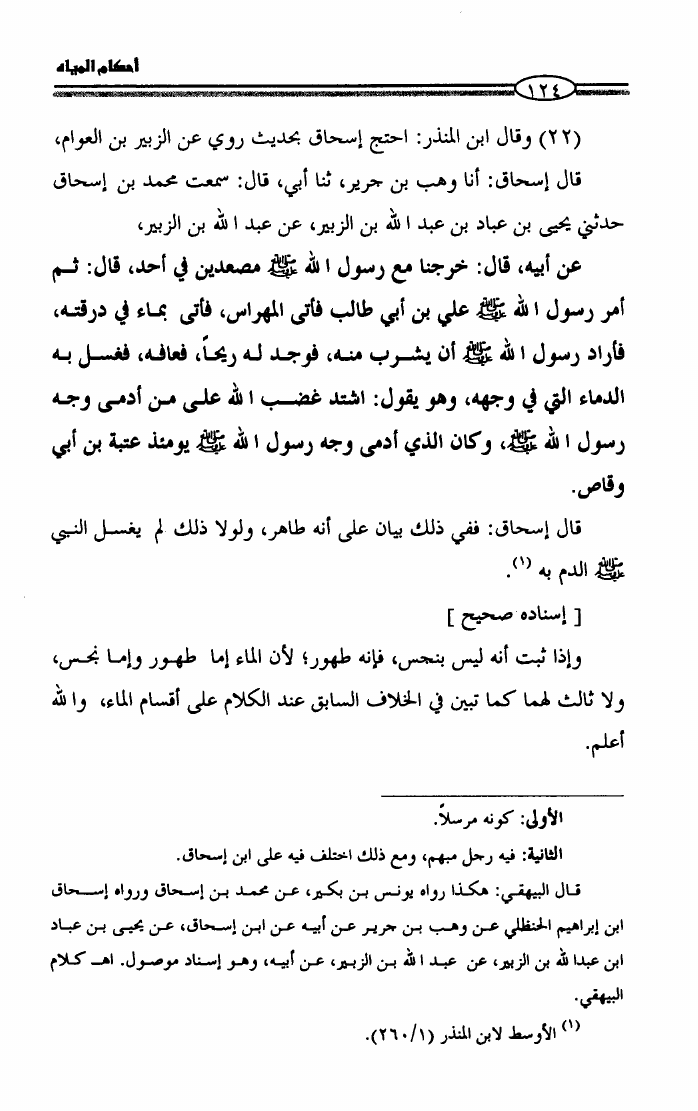 أحكام المياه
١٢٤
(٢٢) وقال ابن المنذر: احتج إسحاق بحديث روي عن الزبير بن العوام،
قال إسحاق: أنا وهب بن جرير، ثنا أبي، قال: سمعت محمد بن إسحاق
حدثني يحيى بن عباد بن عبد الله بن الزبير، عن عبد الله بن الزبير،
عن أبيه، قال: خرجنا مع رسول الله ﷺ مصعدين في أحد، قال: ثم
أمر رسول الله ﷺ علي بن أبي طالب فأتى المهراس، فأتى بماء في درقته،
فأراد رسول الله ﷺ أن يشرب منه، فوجد له ريحاً، فعافه، فغسل به
الدماء التي في وجهه، وهو يقول: اشتد غضب الله على من أدمى وجه
رسول الله ﷺ، وكان الذي أدمى وجه رسول الله ﷺ يومئذ عتبة بن أبي
وقاص.
قال إسحاق: ففي ذلك بيان على أنه طاهر، ولولا ذلك لم يغسل النبي
ﷺ الدم به (١).
[ إسناده صحيح ]
وإذا ثبت أنه ليس بنجس، فإنه طهور؛ لأن الماء إما طهور وإما نجس،
ولا ثالث لهما كما تبين في الخلاف السابق عند الكلام على أقسام الماء، والله
أعلم.
الأولى: كونه مرسلاً.
الثانية: فيه رجل مبهم، ومع ذلك اختلف فيه على ابن إسحاق.
قال البيهقي: هكذا رواه يونس بن بكير، عن محمد بن إسحاق ورواه إسحاق
ابن إبراهيم الحنظلي عن وهب بن جرير عن أبيه عن ابن إسحاق، عن يحيى بن عباد
ابن عبدالله بن الزبير، عن عبد الله بن الزبير، عن أبيه، وهو إسناد موصول. اهـ كلام
البيهقي.
(١) الأوسط لابن المنذر (٢٦٠/١).